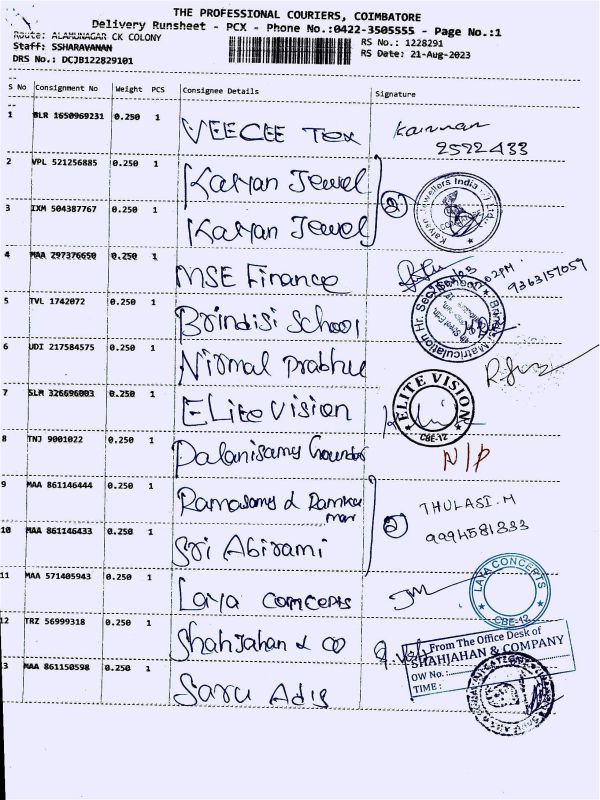 THE PROFESSIONAL COURIERS, COIMBATORE
Delivery Runsheet - PCX - Phone No.:0422-3505555 - Page No.:1
Route: ALAMUNAGAR CK COLONY
RS No.: 1228291
Staff: SSHARAVANAN
RS Date: 21-Aug-2023
DRS No.: DCJB122829101
S No Consignment No Weight PCS Consignee Details Signature
1 BLR 1650969231 0.250 1 VEECEE Tex Kannan
2522433
2 VPL 521256885 0.250 1 Kalyan Jewel
3 IXM 504387767 0.250 1 Kalyan Jewel 2
Kalyan Jewellers India
4 MAA 297376650 0.250 1 MSE Finance
9363157059
5 TVL 1742072 0.250 1 Brindisi School
Matriculation Hr. Sec. School
6 UDI 217584575 0.250 1 Nirmal Prabhu
7 SLM 326696003 0.250 1 ELite Vision
ELITE VISION
CBE-12
8 TNJ 9001022 0.250 1 Palanisamy Gounder N/P
9 MAA 861146444 0.250 1 Ramasamy & Ramku
mar
THULASI.M
10 MAA 861146433 0.250 1 Sri Abirami 2
9994581333
11 MAA 571405943 0.250 1 Laya concepts
LAYA CONCERTS
CBE-12
12 TRZ 56999318 0.250 1 Shahjahan & co
From The Office Desk of
SHAHJAHAN & COMPANY
OW No.:
TIME :
13 MAA 861150598 0.250 1 Saru Adis